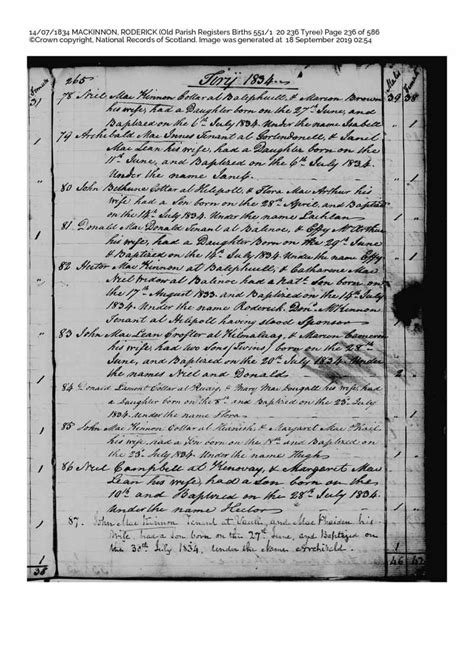 14/07/1834 MACKINNON, RODERICK (Old Parish Registers Births 551/1 20 236 Tyree) Page 236 of 586
©Crown copyright, National Records of Scotland. Image was generated at 18 September 2019 02:54
265 Tirij 1834.
31 78 Niel Mac Kinnon Cottar at Balephuill, & Marion Brown 39 38
his wife, had a Daughter born on the 27th June, and
Baptized on the 6th July 1834. Under the name Isabell
79 Archibald Mac Innes Tenant at & Janet
Mac Lean his wife, had a Daughter born on the
11th June, and Baptized on the 6th July 1834.
Under the name Janet.
80 John Bethune Cottar at Hilipoll, & Flora Mac Arthur his
wife had a Son born on the 28th April, and Baptized
on the 14th July 1834. Under the name Lachlan
81. Donald Mac Donald Tenant at Balinoe, & Effy McArthur
his wife, had a Daughter Born on the 29th June
& Baptized on the 14th July 1834. Under the name Effy
82 Hector Mac Kinnon at Balephuill, & Catharine Mac
Niel widow at Balinoe had a Natl. Son born on
the 17th August 1833. and Baptized on the 14th July
1834. Under the name Roderick. Dond. McKinnon
Tenant at Hilipoll having stood Sponsor
83 John Mac Lean Crofter at Kilmaluag, & Marion Cameron
his wife, had two Sons (twins) born on the 28th
June, and Baptized on the 20th July 1834. Under
the names Niel and Donald 2
84 Donald Lamont Cottar at Ruaig, & Mary Mac Dougall his wife, had
a Daughter born on the 8th and Baptized on the 23d July
1834. Under the name Flora
85 John Mac Kinnon Cottar at & Margaret Mac Phail
his wife, had a Son born on the and Baptized on
the 23d July 1834. Under the name Hugh
86 Niel Campbell at Kenovay, & Margaret Mac
Lean his wife, had a Son born on the
10th and Baptized on the 28th July 1834.
Under the name Hector
87. John Mac Kinnon Tenant at and Mac Phaiden his
Wife, had a Son born on the 27th June, and Baptized on
the 30th July 1834, Under the Name Archibald.
35 46 42